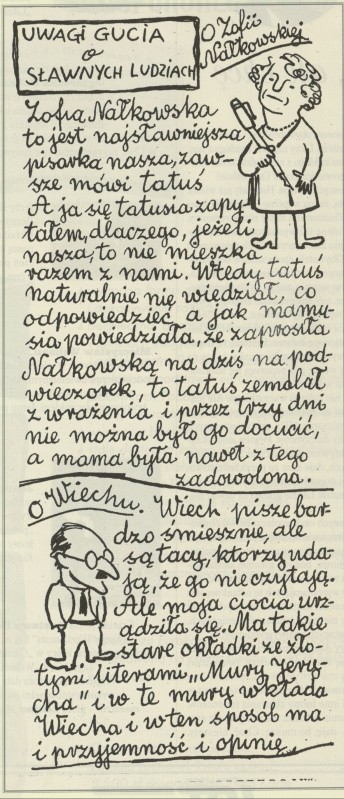 UWAGI GUCIA
o
SŁAWNYCH LUDZIACH
O Zofii
Nałkowskiej
Zofia Nałkowska
to jest najsławniejsza
pisarka nasza, zaw-
sze mówi tatuś
A ja się tatusia zapy-
tałem, dlaczego, jeżeli
nasza, to nie mieszka
razem z nami. Wtedy tatuś
naturalnie nie wiedział, co
odpowiedzieć a jak mamu-
sia powiedziała, że zaprosiła
Nałkowską na dziś na pod-
wieczorek, to tatuś zemdlał
z wrażenia i przez trzy dni
nie można było go docucić,
a mama była nawet z tego
zadowolona.
O Wiechu. Wiech pisze bar-
dzo śmiesznie, ale
są tacy, którzy uda-
ją, że go nie czytają.
Ale moja ciocia urz-
ądziła się. Ma takie
stare okładki ze zło-
tymi literami „Mury Jery-
cha" i w te mury wkłada
Wiecha i w ten sposób ma
i przyjemność i opinię.